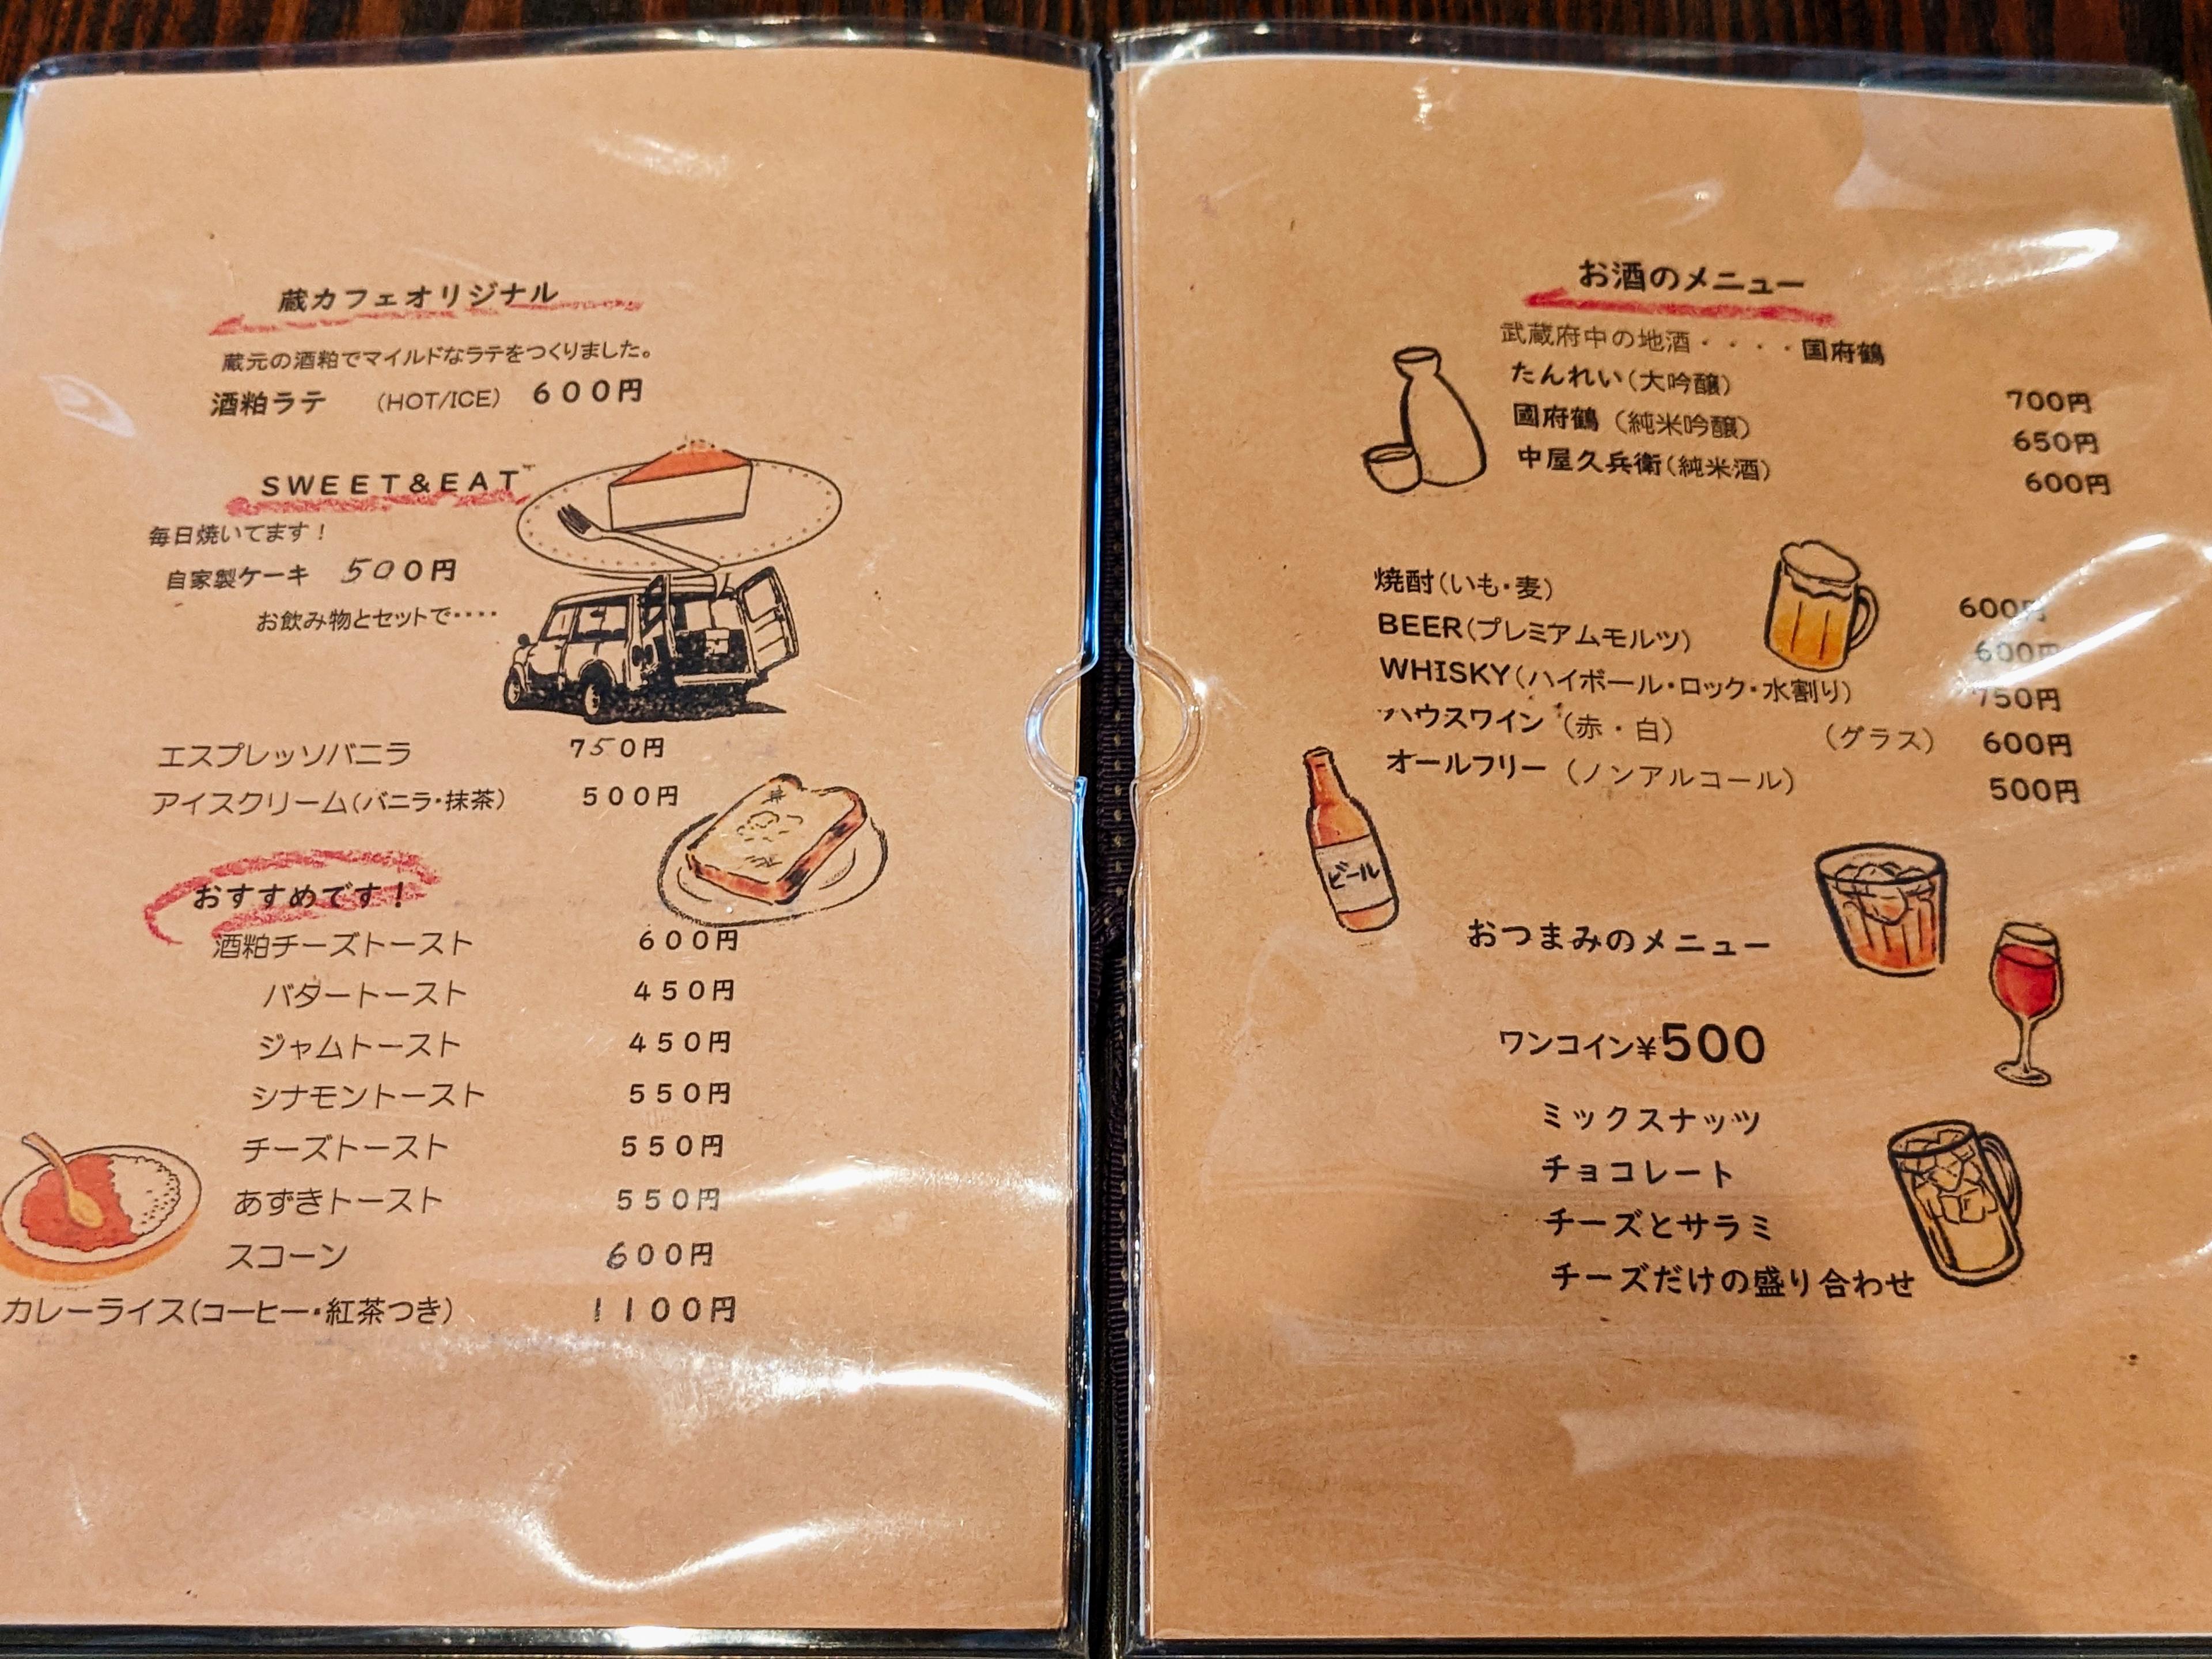 蔵カフェオリジナル
蔵元の酒粕でマイルドなラテをつくりました。
酒粕ラテ (HOT/ICE) 600円
SWEET&EAT
毎日焼いてます！
自家製ケーキ 500円
お飲み物とセットで････
エスプレッソバニラ 750円
アイスクリーム(バニラ・抹茶) 500円
おすすめです！
酒粕チーズトースト 600円
バタートースト 450円
ジャムトースト 450円
シナモントースト 550円
チーズトースト 550円
あずきトースト 550円
スコーン 600円
カレーライス(コーヒー・紅茶つき) 1100円
お酒のメニュー
武蔵府中の地酒・・・・国府鶴
たんれい(大吟醸) 700円
國府鶴 (純米吟醸) 650円
中屋久兵衛(純米酒) 600円
焼酎(いも・麦) 600円
BEER(プレミアムモルツ) 600円
WHISKY(ハイボール・ロック・水割り) 750円
ハウスワイン (赤・白) (グラス) 600円
オールフリー (ノンアルコール) 500円
ビール
おつまみのメニュー
ワンコイン¥500
ミックスナッツ
チョコレート
チーズとサラミ
チーズだけの盛り合わせ